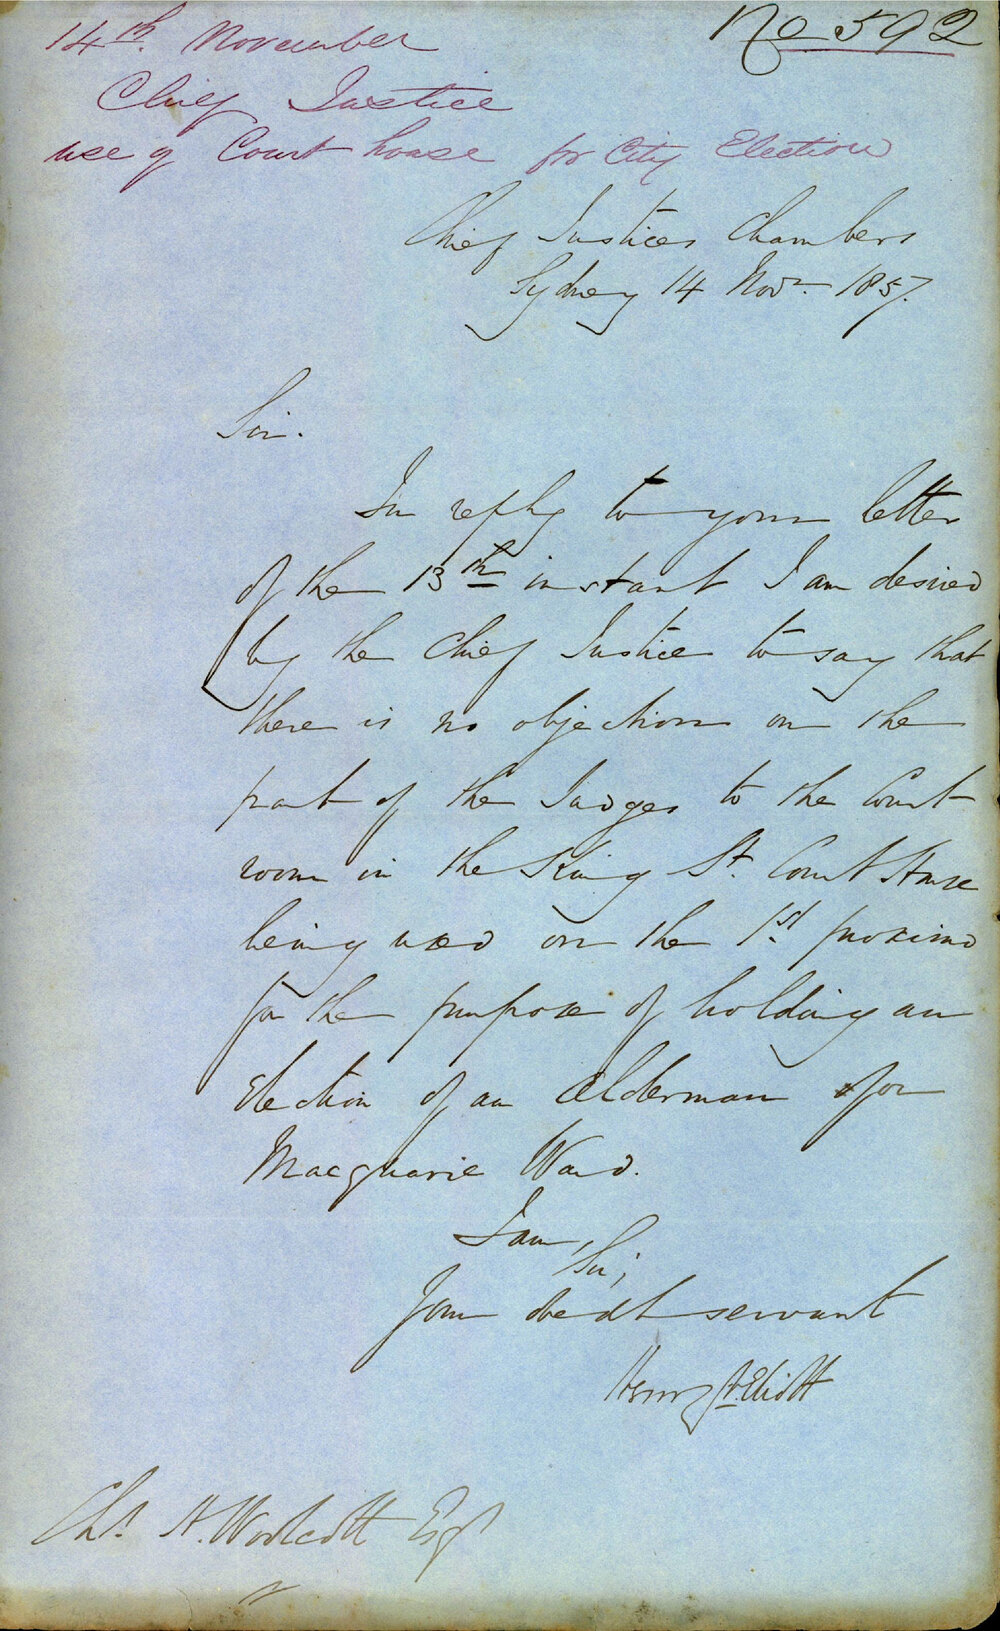 No 592
14th. November
Chief Justice
use of Court house for City Election
Chief Justices Chambers
Sydney 14 Novr. 1857.
Sir.
In reply to your letter
of the 13th instant I am desired
by the Chief Justice to say that
there is no objection on the
part of the Judges to the Court
room in the King St. Court House
being used on the 1st. proximo
for the purpose of holding an
Election of an Alderman for
Macquarie Ward.
I am,
Sir,
Your obedt servant
Henry Eliott
Chs. H. Woolcott Esqr